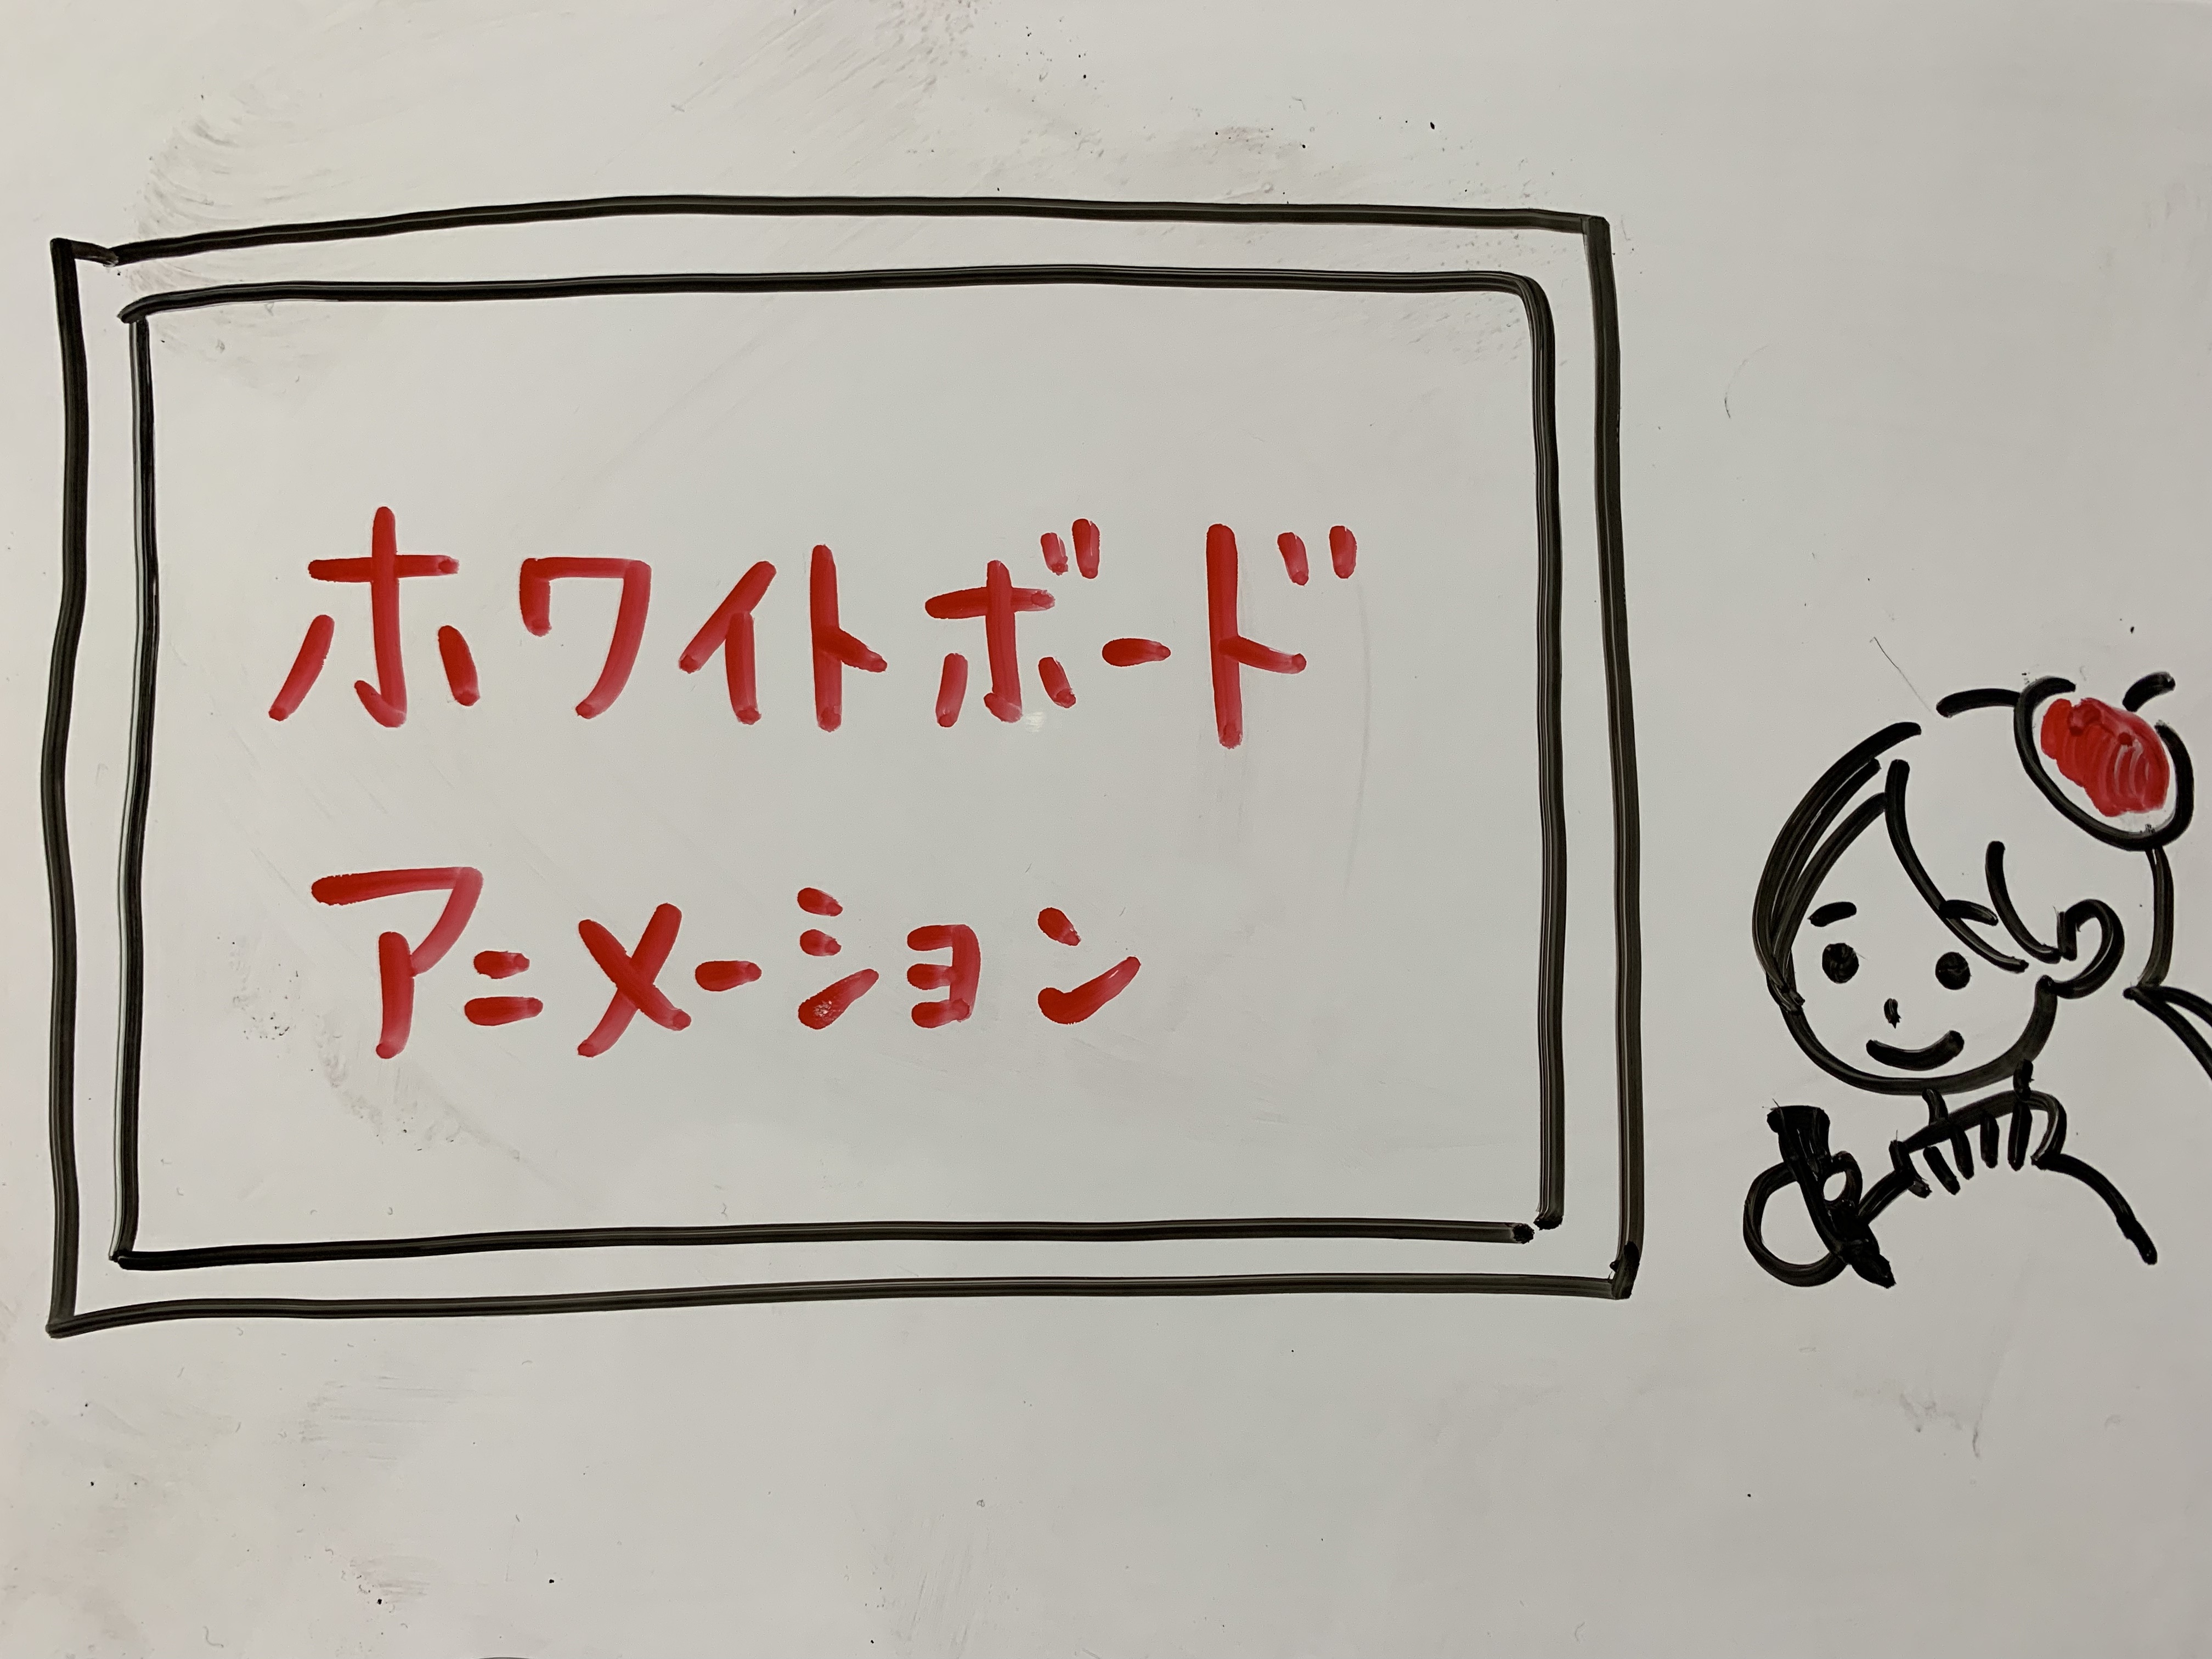 ホワイトボード
アニメーション